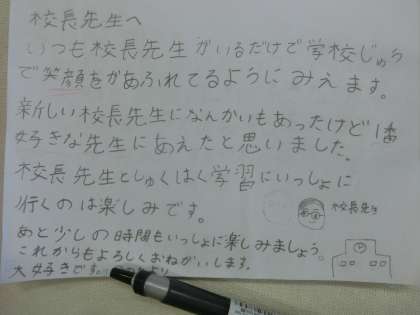 校長先生へ
いつも校長先生がいるだけで学校じゅう
で笑顔をがあふれてるようにみえます。
新しい校長先生になんかいもあったけど1番
好きな先生にあえたと思いました。
校長先生としゅくはく学習にいっしょに
行くのは楽しみです。
校長先生
あと少しの時間もいっしょに楽しみましょう。
これからもよろしくおねがいします。
大好きです。
より